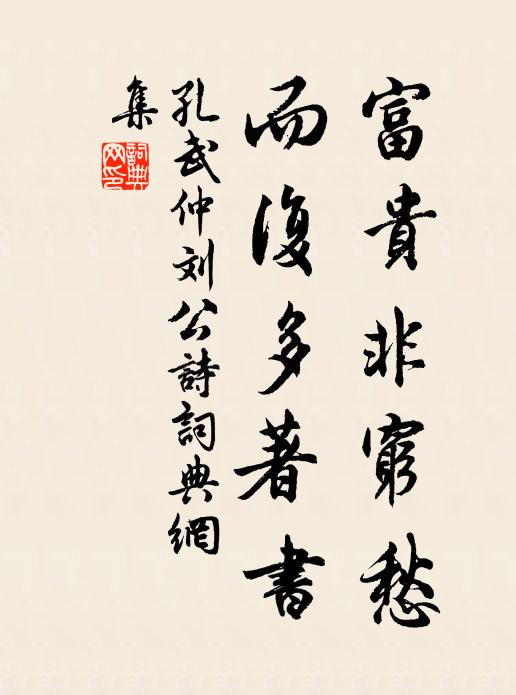 富貴非窮愁
而復多著書
孔武仲刘公詩詞典網
集
詞典网印